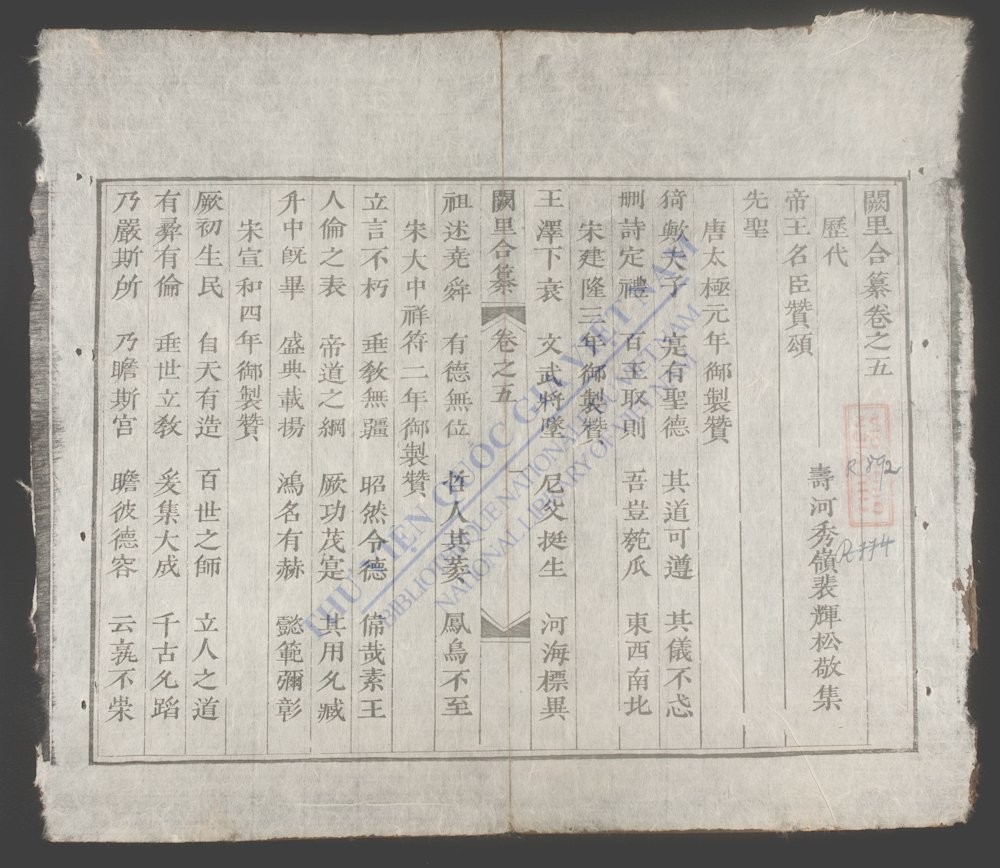 闕里合纂卷之五
歷代
帝王名臣贊頌
壽河秀嶺裴輝松敬集
先聖
唐太極元年御製贊
猗歟夫子 寔有聖德 其道可遵 其儀不忒
刪詩定禮 百王取則 吾豈匏瓜 東西南北
宋建隆三年御製贊
王澤下衰 文武將墜 尼父挺生 河海標異
闕里合纂 卷之五
祖述堯舜 有德無位 哲人其萎 鳳鳥不至
宋大中祥符二年御製贊
立言不朽 垂教無疆 昭然令德 偉哉素王
人倫之表 帝道之綱 厥功茂寔 其用允臧
升中旣畢 盛典載揚 鴻名有赫 懿範彌彰
宋宣和四年御製贊
厥初生民 自天有造 百世之師 立人之道
有彝有倫 垂世立教 爰集大成 千古允蹈
乃嚴斯所 乃瞻斯宮 瞻彼德容 云孰不崇
R.892
R.774
THƯ VIỆN QUỐC GIA VIỆT NAM
BIBLIOTHEQUE NATIONALE DU VIETNAM
NATIONAL LIBRARY OF VIETNAM